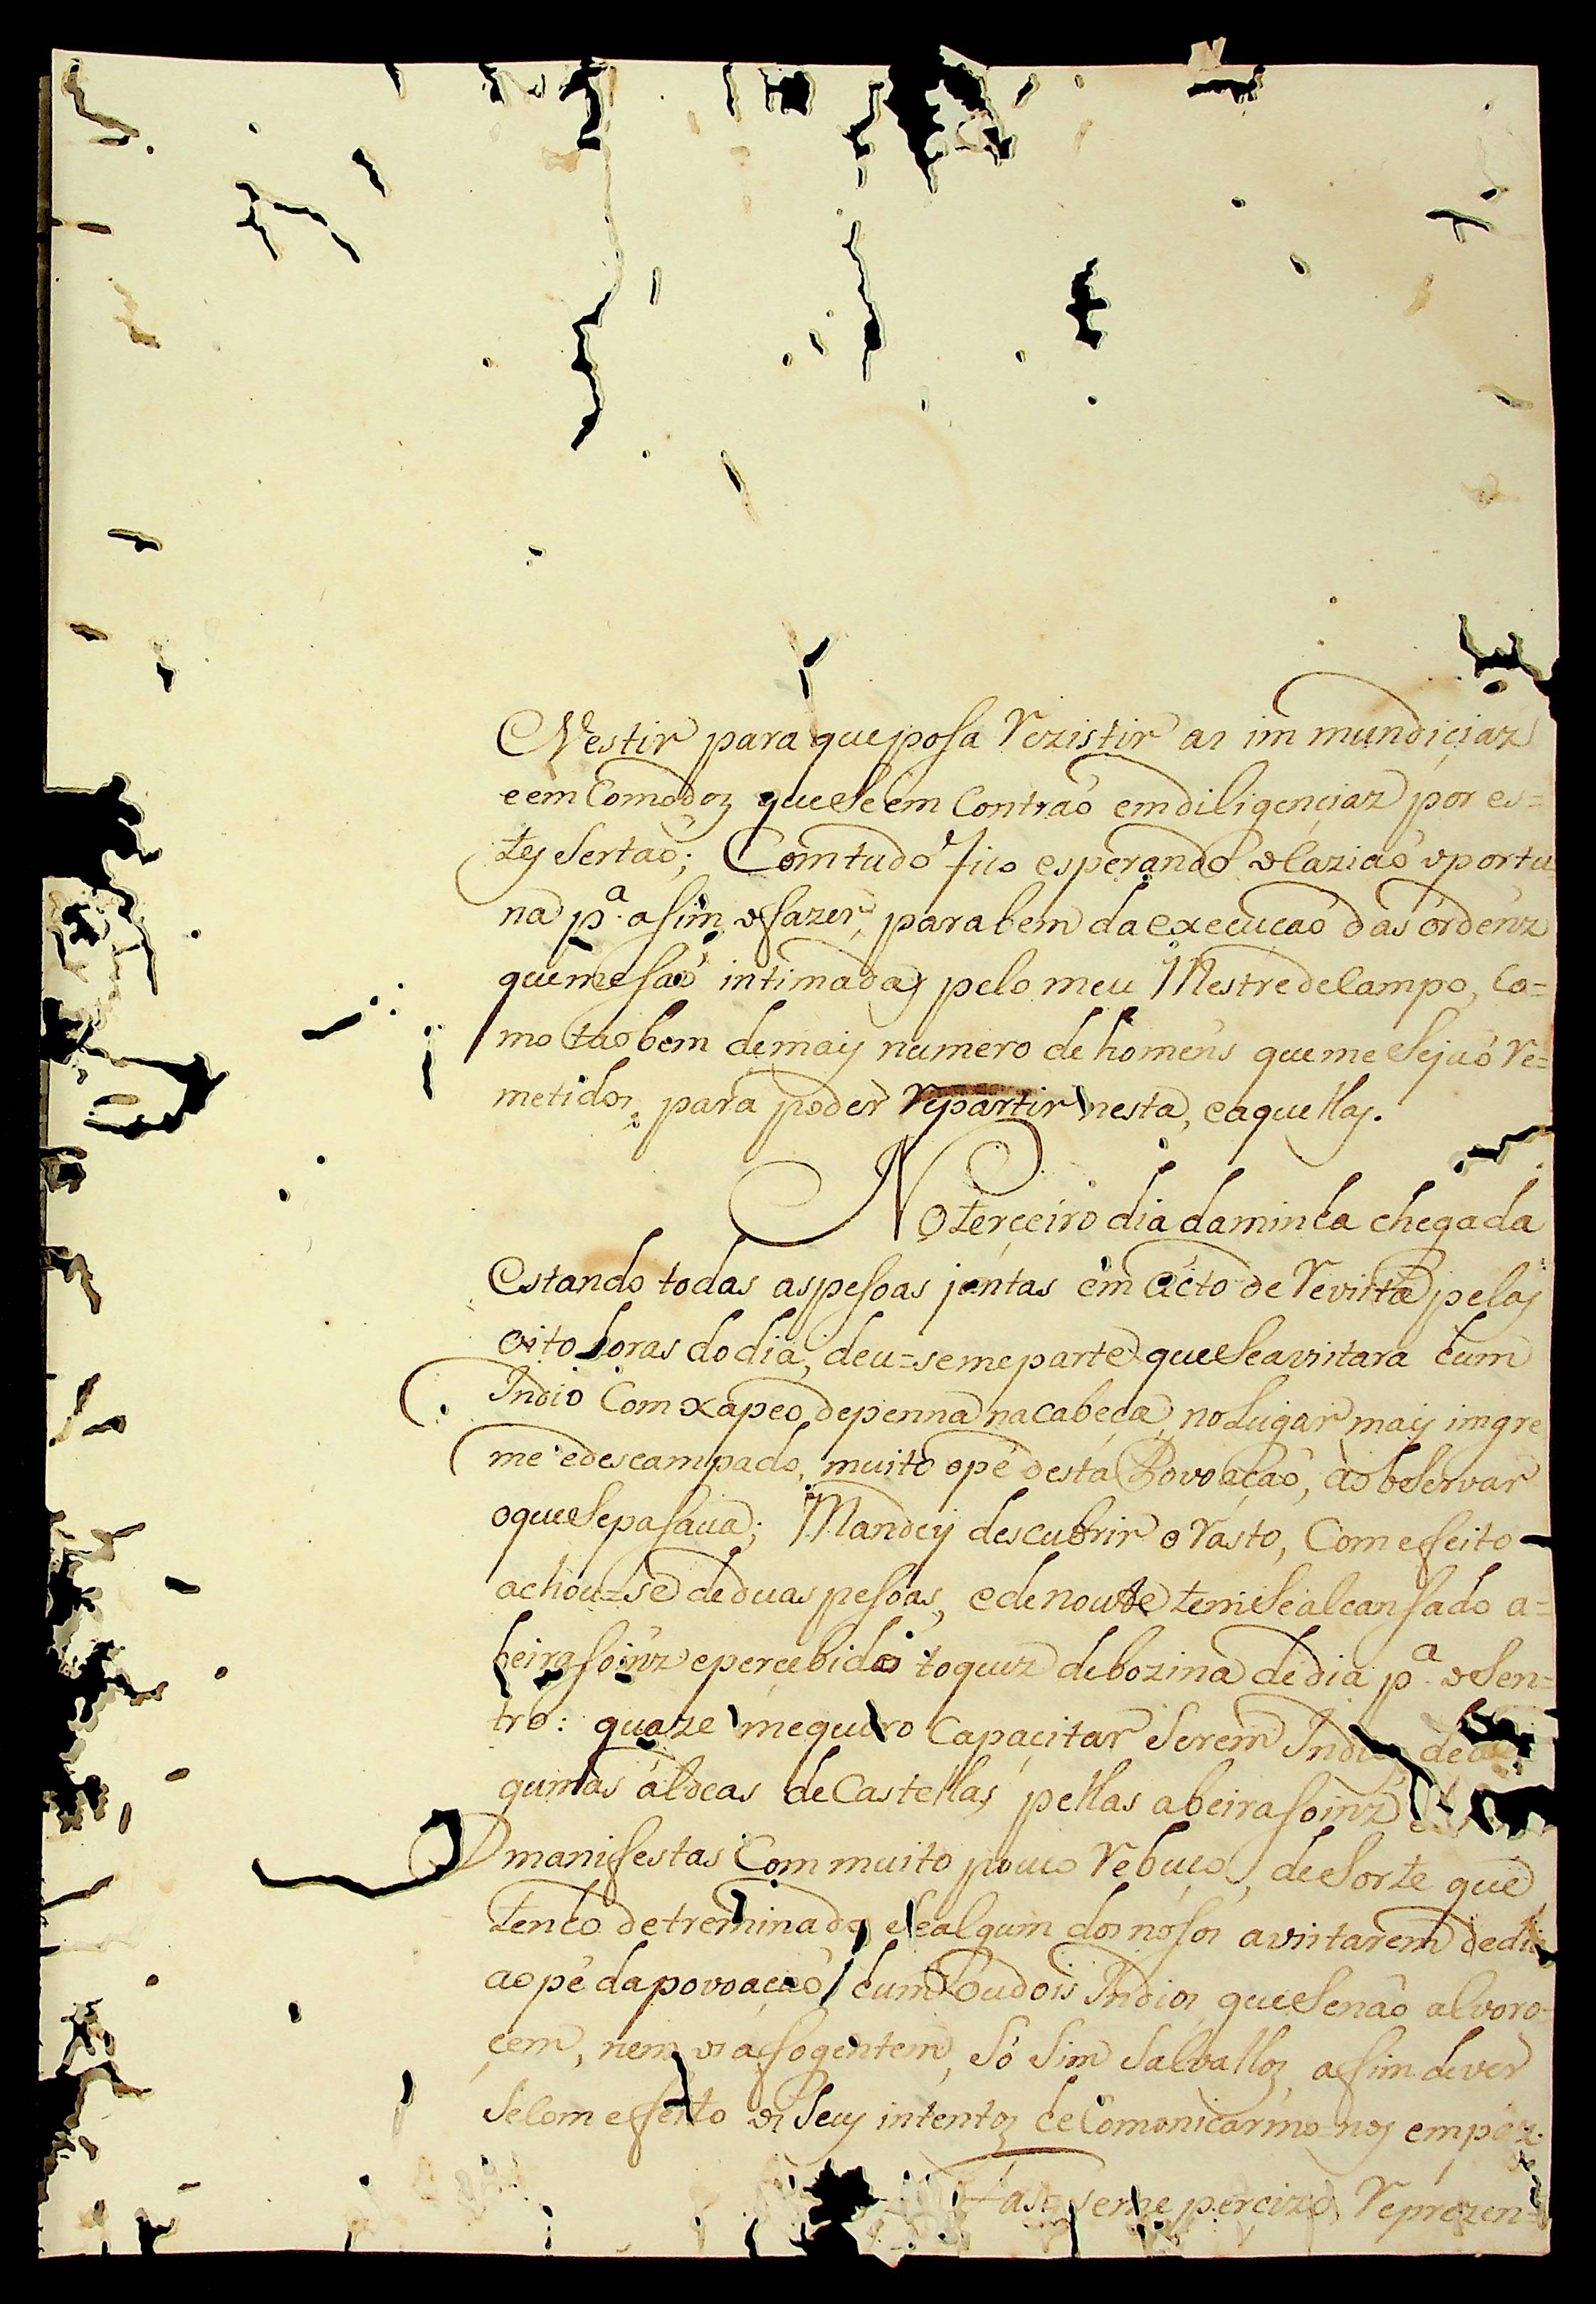 Vestir para que posa Rezistir as immundiçiaz
e em Comodoz que Se em Contraõ em diligençiaz por es=
tes Sertaõ; Com tudo fico esperando o Caziaõ oportu
na p.ª asim o fazer, para bem da execucaõ das ordenz
que me saõ intimadas pelo meu Mestre de Campo, Co=
mo taobem de mais numero de homens que me Sejaõ Re=
metidos para poder Repartir nesta, e aquellas.
No terçeiro dia da minha chegada
Estando todas as pesoas juntas em Acto de Revista pelas
oito horas do dia, deu=se me parte que Se avistara hum
Indio Com xapeo de penna na cabeça, no Lugar mais imgre
me e descampado, muito ò pé desta Povoaçaõ, a observar
o que Se pasava; Mandey descubrir o Rasto, Com effeito
achou=se de duas pesoas, e de noute tem Se alcansado a=
beirasoinz e percebidos toquez de bozina de dia p.ª o Sen=
tro: quaze me quero Capaçitar Serem Indios de al
gumas aldeas de Castellas pellas abeirasoinz
manifestas Com muito pouco Rebuço, de Sorte que
tenho detreminado Se algum dos nosos avistarem de dia
ao pé da povoaçaõ hum ou dois Indios que Se naõ alvoro=
çem, nem os afogentem, Só Sim Salvallos, afim de ver
Se Com effeito os Seus intentos he Comonicarmo=nos em páz.
Fas=se me percizo Reprezen=